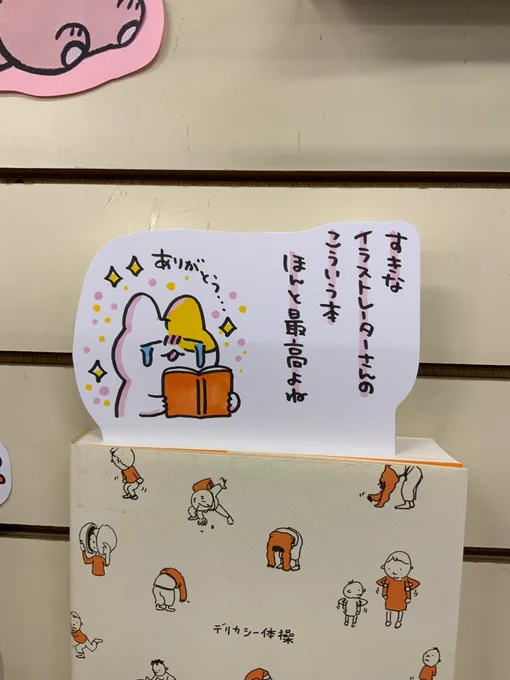 すきな
イラストレーターさんの
こういう本
ほんと最高よね
ありがとう...
デリカシー体操